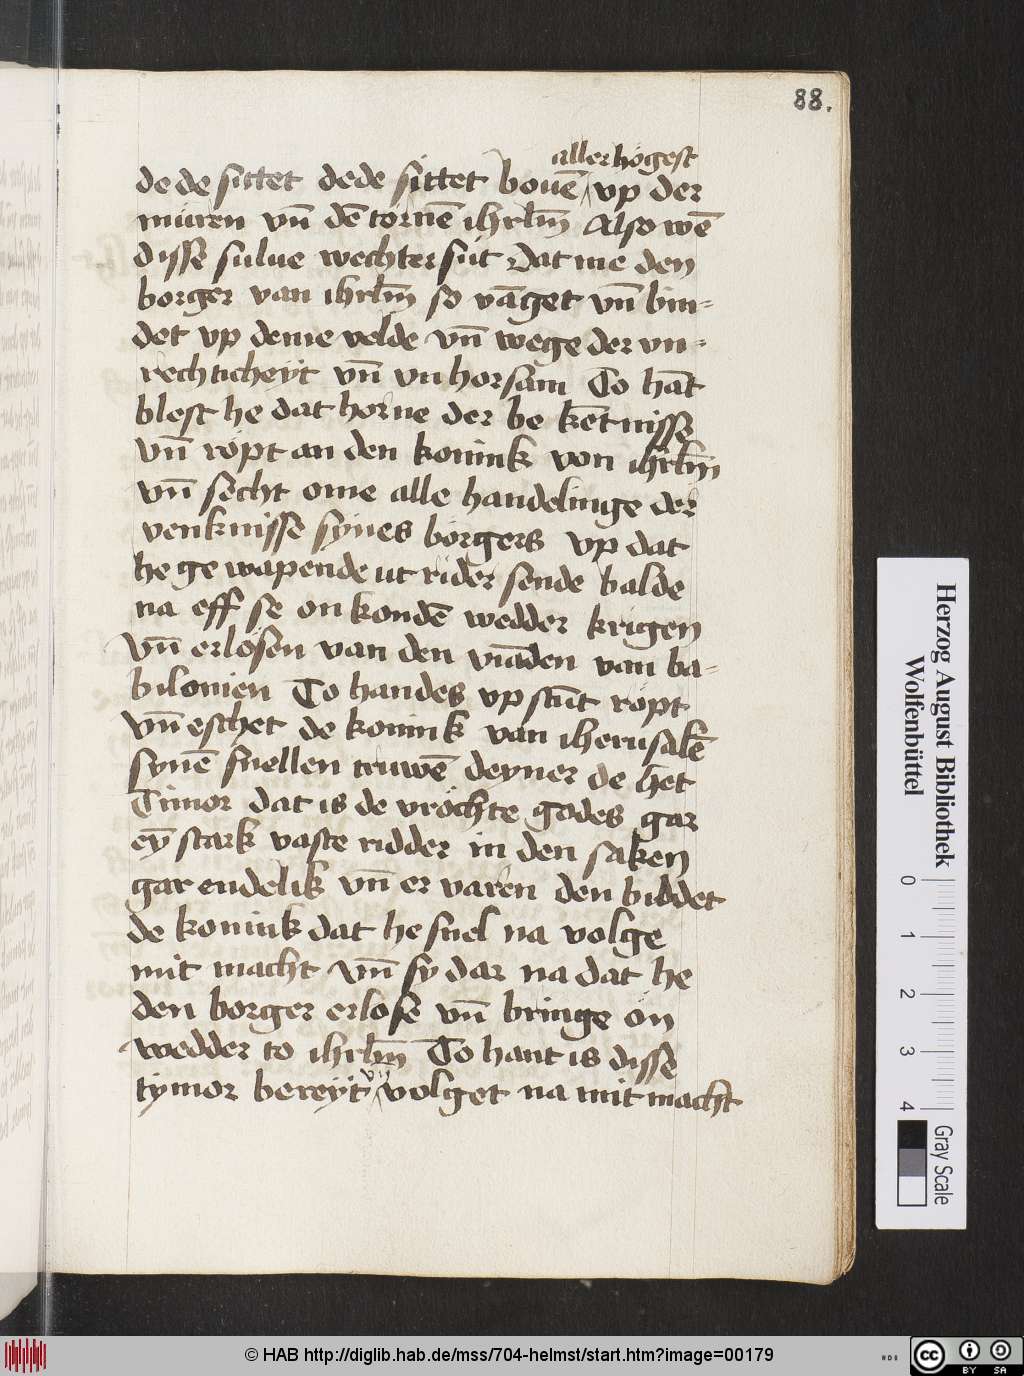 88.
aller hogest
de de sittet dede sittet bouē vp der
müren vn̄ dē tornē ihrlm̄ Also wē
disse sulue wechter süt Dat me den
borger van ihrlm̄ so vāget vn̄ bin-
det vp deme velde vn̄ wege der vn-
rechticheÿt vn̄ vnhorsam To hāt
blest he dat horne der be kētnisse
vn̄ röpt an den konink von ihrlm̄
vn̄ secht ome alle handelinge der
venknisse synes borgers vp dat
he ge wapende ut rider sende balde
na eff se on kondē wedder krigen
vn̄ erlösen van den viāden van ba-
bilonien To handes vp stūt röpt
vn̄ eschet de konink van iherusalē
synē snellen truwē deyner de hēt
Timor dat is de vröchte godes gar
eȳ stark vaste ridder in den saken
gar endelik vn̄ er varen den biddet
de konink dat he snel na volge
mit macht vn̄ sy dar na dat he
den borger erlose vn̄ bringe ön
wedder to ihrlm̄ To hant is disse
tymor bereÿt vn̄ volget na mit macht
Herzog August Bibliothek
Wolfenbüttel
0 1 2 3 4
Gray Scale
© HAB http://diglib.hab.de/mss/704-helmst/start.htm?image=00179
HAB
cc BY SA